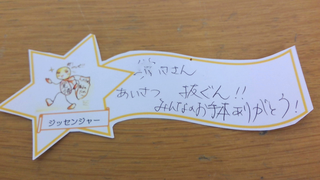 さん
あいさつ 抜ぐん!!
みんなのお手本ありがとう!
ジッセンジャー